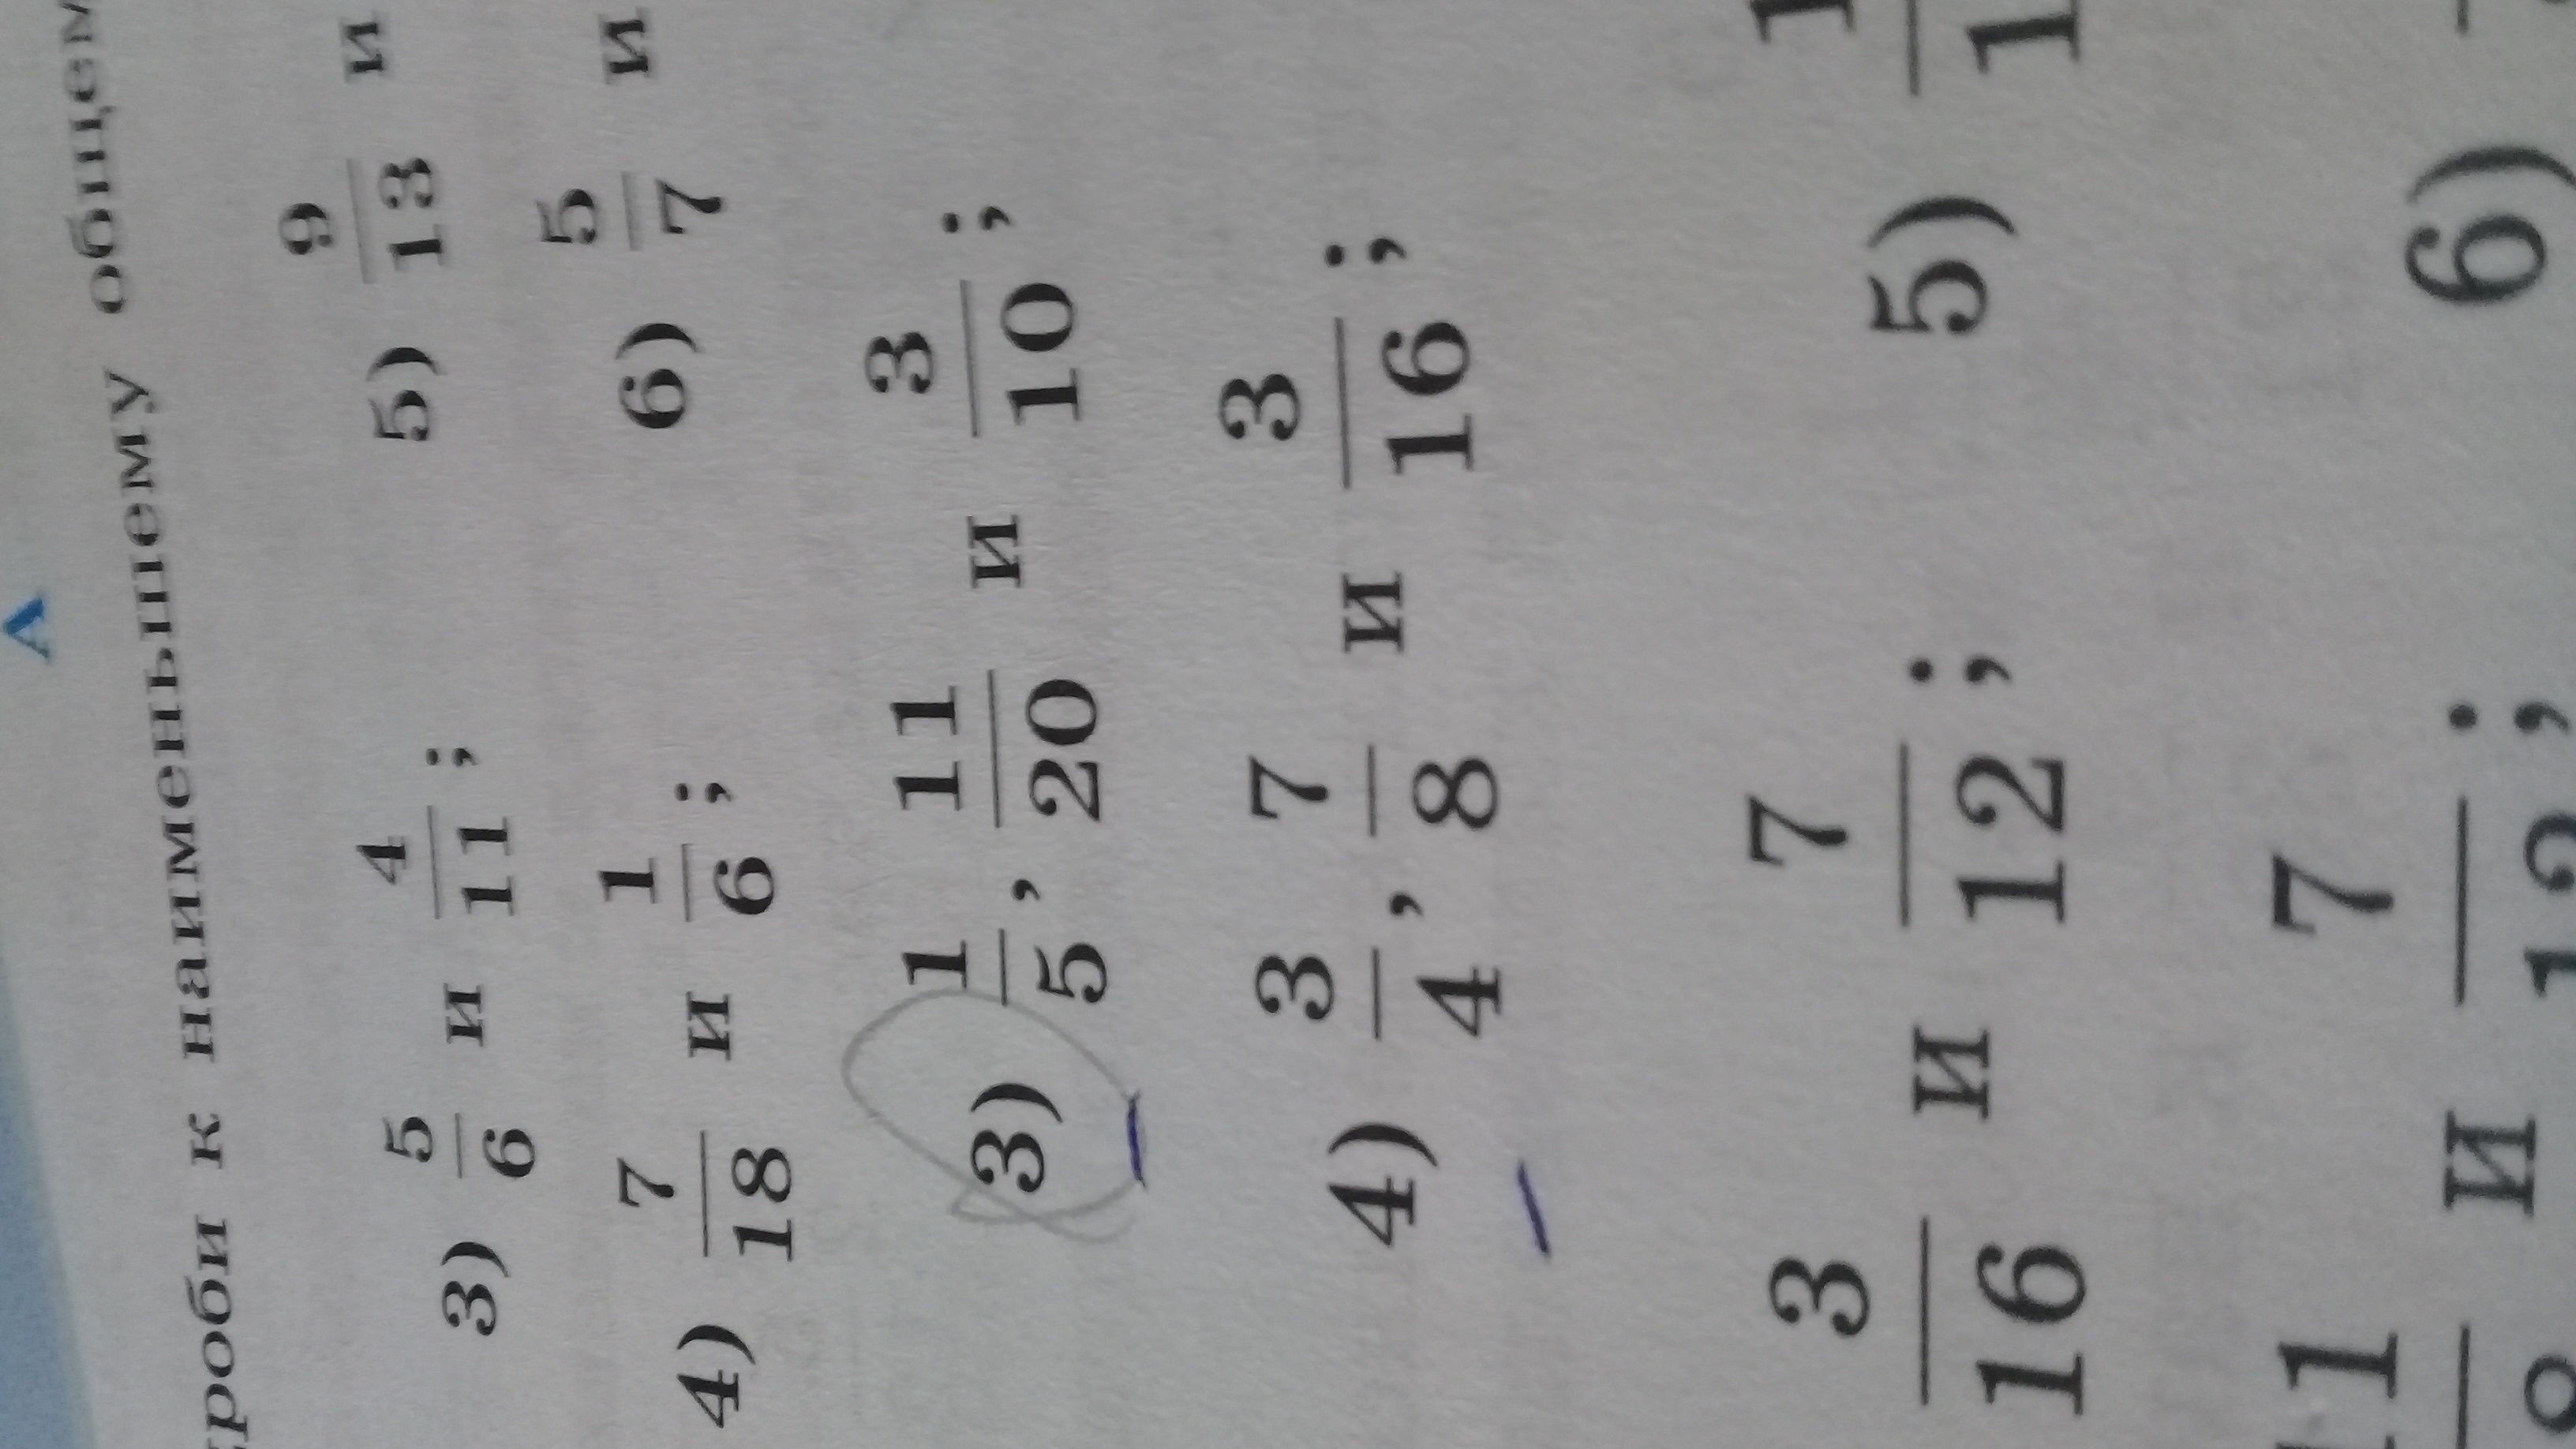 А
дроби к наименьшему общем
3) 5/6 и 4/11; 5) 9/13 и
4) 7/18 и 1/6; 6) 5/7 и
3) 1/5, 11/20 и 3/10;
4) 3/4, 7/8 и 3/16;
3/16 и 7/12; 5) 1
и 7/12; 6)